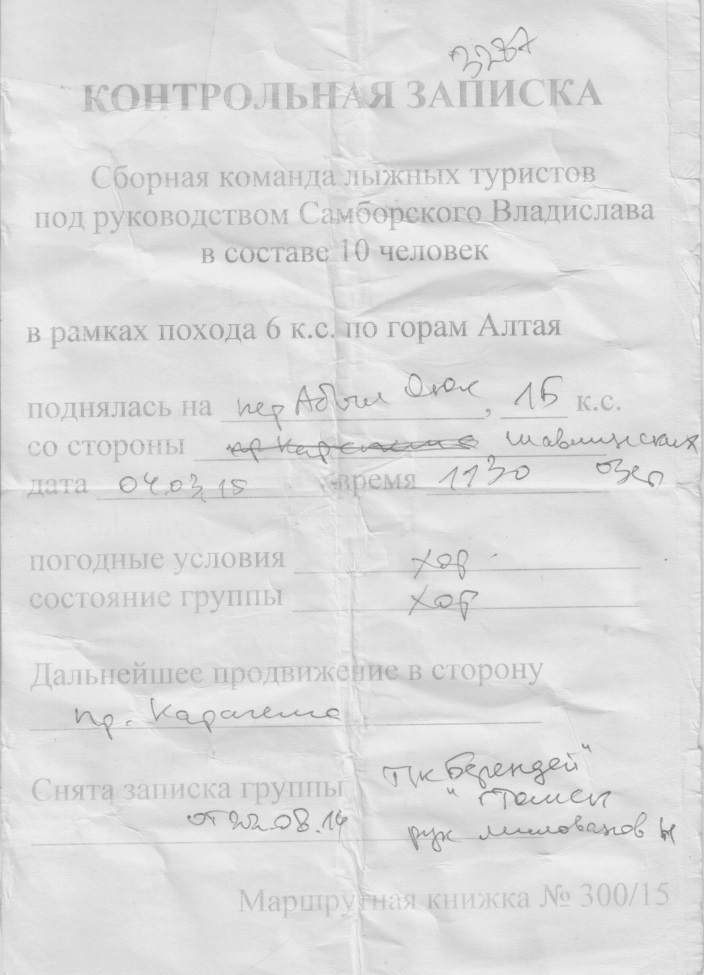 3287
КОНТРОЛЬНАЯ ЗАПИСКА
Сборная команда лыжных туристов
под руководством Самборского Владислава
в составе 10 человек
в рамках похода 6 к.с. по горам Алтая
поднялась на пер Абыл Оюк, 1Б к.с.
со стороны Шавлинских
озер
дата 04.03.15 время 1130
погодные условия хор.
состояние группы хор
Дальнейшее продвижение в сторону
пр. Карагема
Снята записка группы т/к Берендей"
" г Томск
от 22.08.14 рук Милованов Н
Маршрутная книжка № 300/15